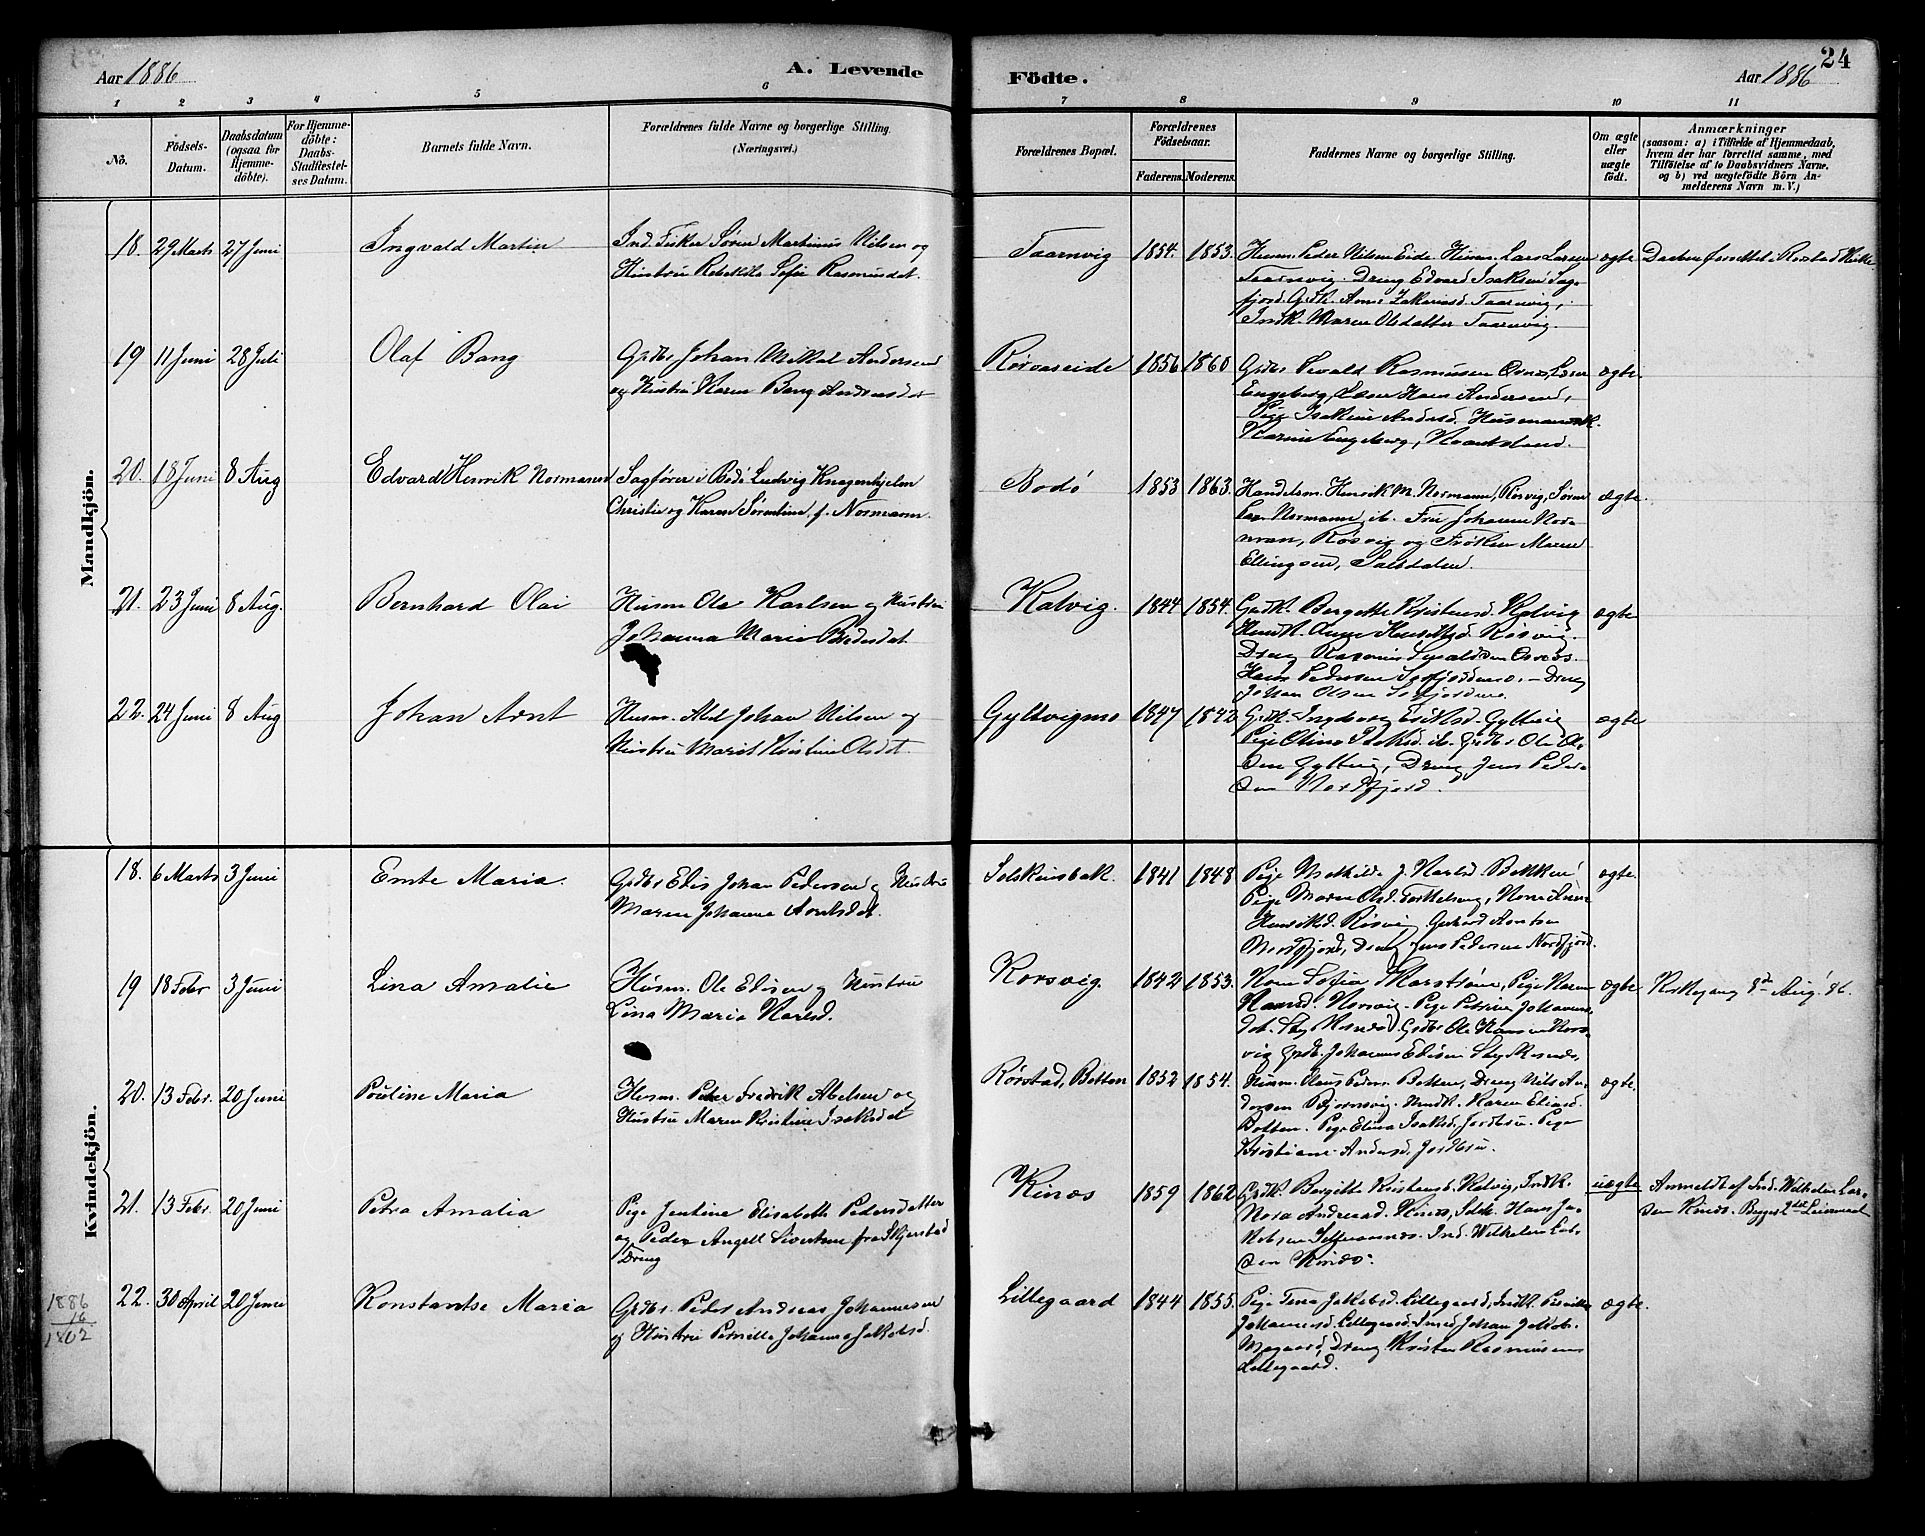 24
Aar 1886
A. Levende
Födte.
Aar 1886
1 2 3 4 5 6 7 8 9 10 11
Nô.
Födsels-
Datum.
Daabsdatum
(ogsaa for
Hjemme-
döbte).
For Hjemme-
döbte:
Daabs-
Stadfæstel-
ses Datum.
Barnets fulde Navn.
Forældrenes fulde Navne og borgerlige Stilling.
(Næringsvei.)
Forældrenes Bopæl.
Forældrenes
Födselsaar.
Faderens. Moderens.
Faddernes Navne og borgerlige Stilling.
Om ægte
eller
uægte
födt.
Anmærkninger
(saasom: a) i Tilfælde af Hjemmedaab,
hvem der har forrettet samme, med
Tilföielse af to Daabsvidners Navne.
og b) ved uægtefödte Börn An-
melderens Navn m. V.)
Mandkjön.
18. 29 Marts 27 Juni Ingvald Martin
Ind. Fisker Sören Martinus Nilsen og
Hustru Rebekka Sofie Rasmusdat.
Taarnvig 1854. 1853.
Husm. Peder Nilsen Eide. Husm. Lars Larsen
Taarnvig. Dreng Edvard Isaksen Sag-
fjord. Grdk. Ane Zakariasd. Taarnvig,
Indk. Maren Olsdatter Taarnvig.
ægte Daaben forrettet i Rørstad Kirke
19 11 Juni 28 Juli Olaf Bang
Grdbr Johan Mikal Andersen
og Hustru Karen Bang Andersdat
Rörvaseide 1856 1860
Grdbr Sevald Rasmussen
Engeberg, Hans Andersen,
Pige Isakine Andersd. Husmandsk.
Karine Engeberg,
ægte.
20. 18 Juni 8 Aug Edvard Henrik Normann
Sagförer i Bodö Ludvig Knagenhjelm
Christie og Karen Sörentine, f. Normann.
Bodö 1853 1863.
Handelsm. Henrik M. Normann, Rösvig, Sören
Normann, ib. Fru Johanne Nor-
mann, Rösvig og Fröken Maren
Ellingsen, Saltdalen.
ægte.
21. 23 Juni 8 Aug. Bernhard Olai
Husm Ole Karlsen og Hustru
Johanna Maria Pedersdat.
Kalvig. 1844 1854.
Grdk. Bergette Kristensd. Kalvig
Husmk. Anne Rösvig.
Dreng Rasmus Sevaldsen
Hans Pedersen Dreng
Johan Olsen
ægte
22. 24 Juni 8 Aug Johan Arnt
Husm. Abel Johan Nilsen og
Hustru Marit Kirstine Olsdt.
Gyltvigmo 1847 1842.
Grdk. Ingeborg Eriksd. Gyltvig
Pige Oline Isaksd. ib. Grdbr Ole Ol-
sen Gyltvig, Dreng Jens Peder-
sen Nordfjord.
ægte
Kvindekjön.
18. 6 Marts 3 Juni Emte Maria.
Grdbr Elis Johan Pedersen og Hustru
Maren Johanna Arntsdat.
Solskinsbak. 1841 1848
Pige Mathilde J. Karlsd. Bakken
Pige Maren Olsd. Kone
Henriksd. Rösvig. Gerhard Arntsen
Nordfjord, Dreng Jens Pedersen Nordfjord.
ægte.
19 18 Febr 3 Juni Lina Amalie
Husm. Ole Elisen og Hustru
Lina Maria Karlsd.
Korsvig. 1842 1853.
Kone Sofia Pige Karen
Hansd. Korsvig. Pige Petrine Johannes-
dat. Grdbr Ole Hansen Kors-
vig Grdb. Johannes Elisen
ægte Kirkegang 8de Aug. 86.
20. 13 Febr. 20 Juni Pauline Maria
Husm. Peter Fredrik Abelsen og
Hustru Maren Kristine Isaksdat
Rörstad, Botten 1852 1854.
Husm. Peders. Botten, Dreng Nils An-
dersen Bjornsvig. Husmk. Karen Eliasd.
Botten. Pige Elina Isaksd. Jordbru. Pige
Kristiane Andersd. Jordbru.
ægte.
21. 13 Febr. 20 Juni Petra Amalia
Pige Jentine Elisabeth Pedersdatter
og Peder Angell Sivertsen fra Skjerstad
Dreng
Kinæs 1859 1862
Grdk. Bergitte Kristensd. Kalvig, Indk.
Nora Andreasd. Kinæs, Hans Ja-
kobsen Ind. Wilhelm Lar-
sen Kinæs.
uægte Anmeldt af Ind. Wilhelm Lar-
sen Kinæs. Begges Leiermaal
1886
16
1802
22. 30 April 20 Juni Konstantse Maria
Grdbr. Peder Andreas Johannesen
og Hustru Pernille Johanna Jakobsd.
Lillegaard 1844 1855.
Pige Tena Jakobsd. Lillegaard, Indk. Pernille
Johannesd. Lillegaard. Johan Jakob.
Mogaard, Dreng Kristen Rasmusen
Lillegaard.
ægte.